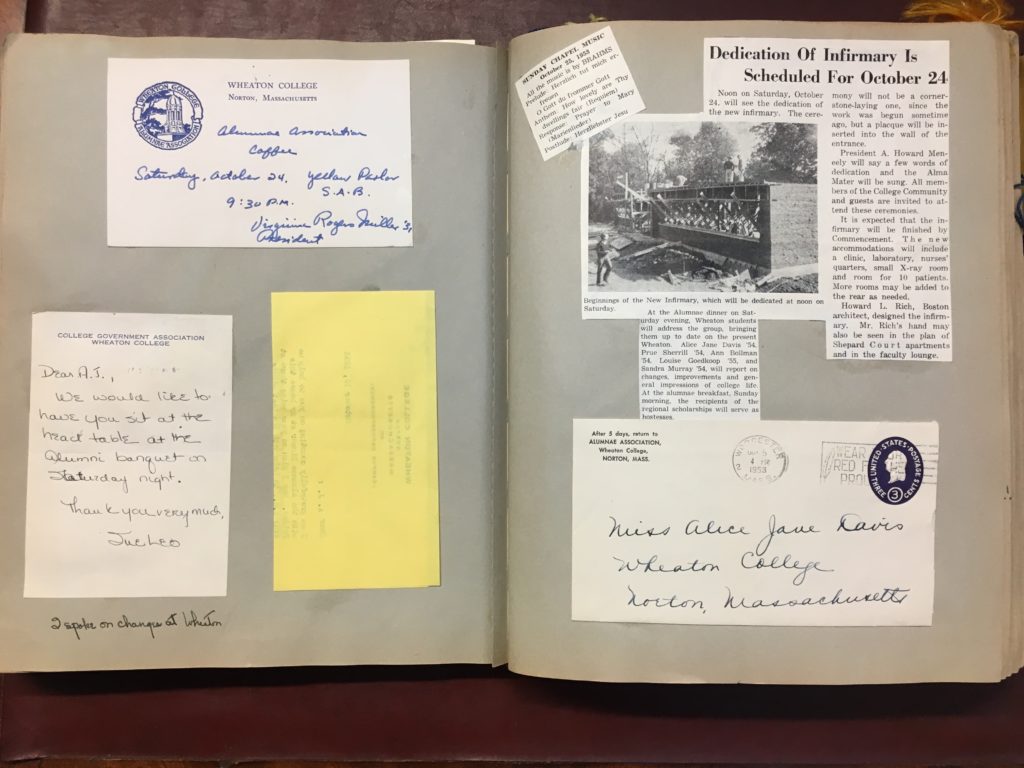 WHEATON COLLEGE
NORTON, MASSACHUSETTS
WHEATON COLLEGE
ALUMNAE ASSOCIATION
Alumnae Association
Coffee
Saturday, October 24. Yellow Parlor
S.A.B.
9:30 P.M.
Virginia Rogers Miller
President
COLLEGE GOVERNMENT ASSOCIATION
WHEATON COLLEGE
Dear A.J.,
We would like to
have you sit at the
head table at the
Alumni banquet on
Saturday night.
Thank you very much,
Sue Leo
spoke on changes at Wheaton
WHEATON COLLEGE
SUNDAY CHAPEL MUSIC
October 25, 1953
All the music is by BRAHMS
Prelude: Herzlich tut mich er-
freuen
O Gott du frommer Gott
Anthem: How lovely are Thy
dwellings fair (Requiem)
Response: Prayer to Mary
(Marienlieder)
Postlude: Herzliebster Jesu
Dedication Of Infirmary Is
Scheduled For October 24
Noon on Saturday, October
24, will see the dedication of
the new infirmary. The cere-
mony will not be a corner-
stone-laying one, since the
work was begun sometime
ago, but a placque will be in-
serted into the wall of the
entrance.
President A. Howard Men-
eely will say a few words of
dedication and the Alma
Mater will be sung. All mem-
bers of the College Community
and guests are invited to at-
tend these ceremonies.
It is expected that the in-
firmary will be finished by
Commencement. The new
accommodations will include
a clinic, laboratory, nurses'
quarters, small X-ray room
and room for 10 patients.
More rooms may be added to
the rear as needed.
Howard L. Rich, Boston
architect, designed the infirm-
ary. Mr. Rich's hand may
also be seen in the plan of
Shepard Court apartments
and in the faculty lounge.
Beginnings of the New Infirmary, which will be dedicated at noon on
Saturday.
At the Alumnae dinner on Sat-
urday evening, Wheaton students
will address the group, bringing
them up to date on the present
Wheaton. Alice Jane Davis '54,
Prue Sherrill '54, Ann Bollman
'54, Louise Goedkoop '55, and
Sandra Murray '54, will report on
changes, improvements and gen-
eral impressions of college life.
At the alumnae breakfast, Sunday
morning, the recipients of the
regional scholarships will serve as
hostesses.
After 5 days, return to
ALUMNAE ASSOCIATION,
Wheaton College,
NORTON, MASS.
1953
WEAR
RED
UNITED STATES POSTAGE
THREE 3 CENTS
Miss Alice Jane Davis
Wheaton College
Norton, Massachusetts